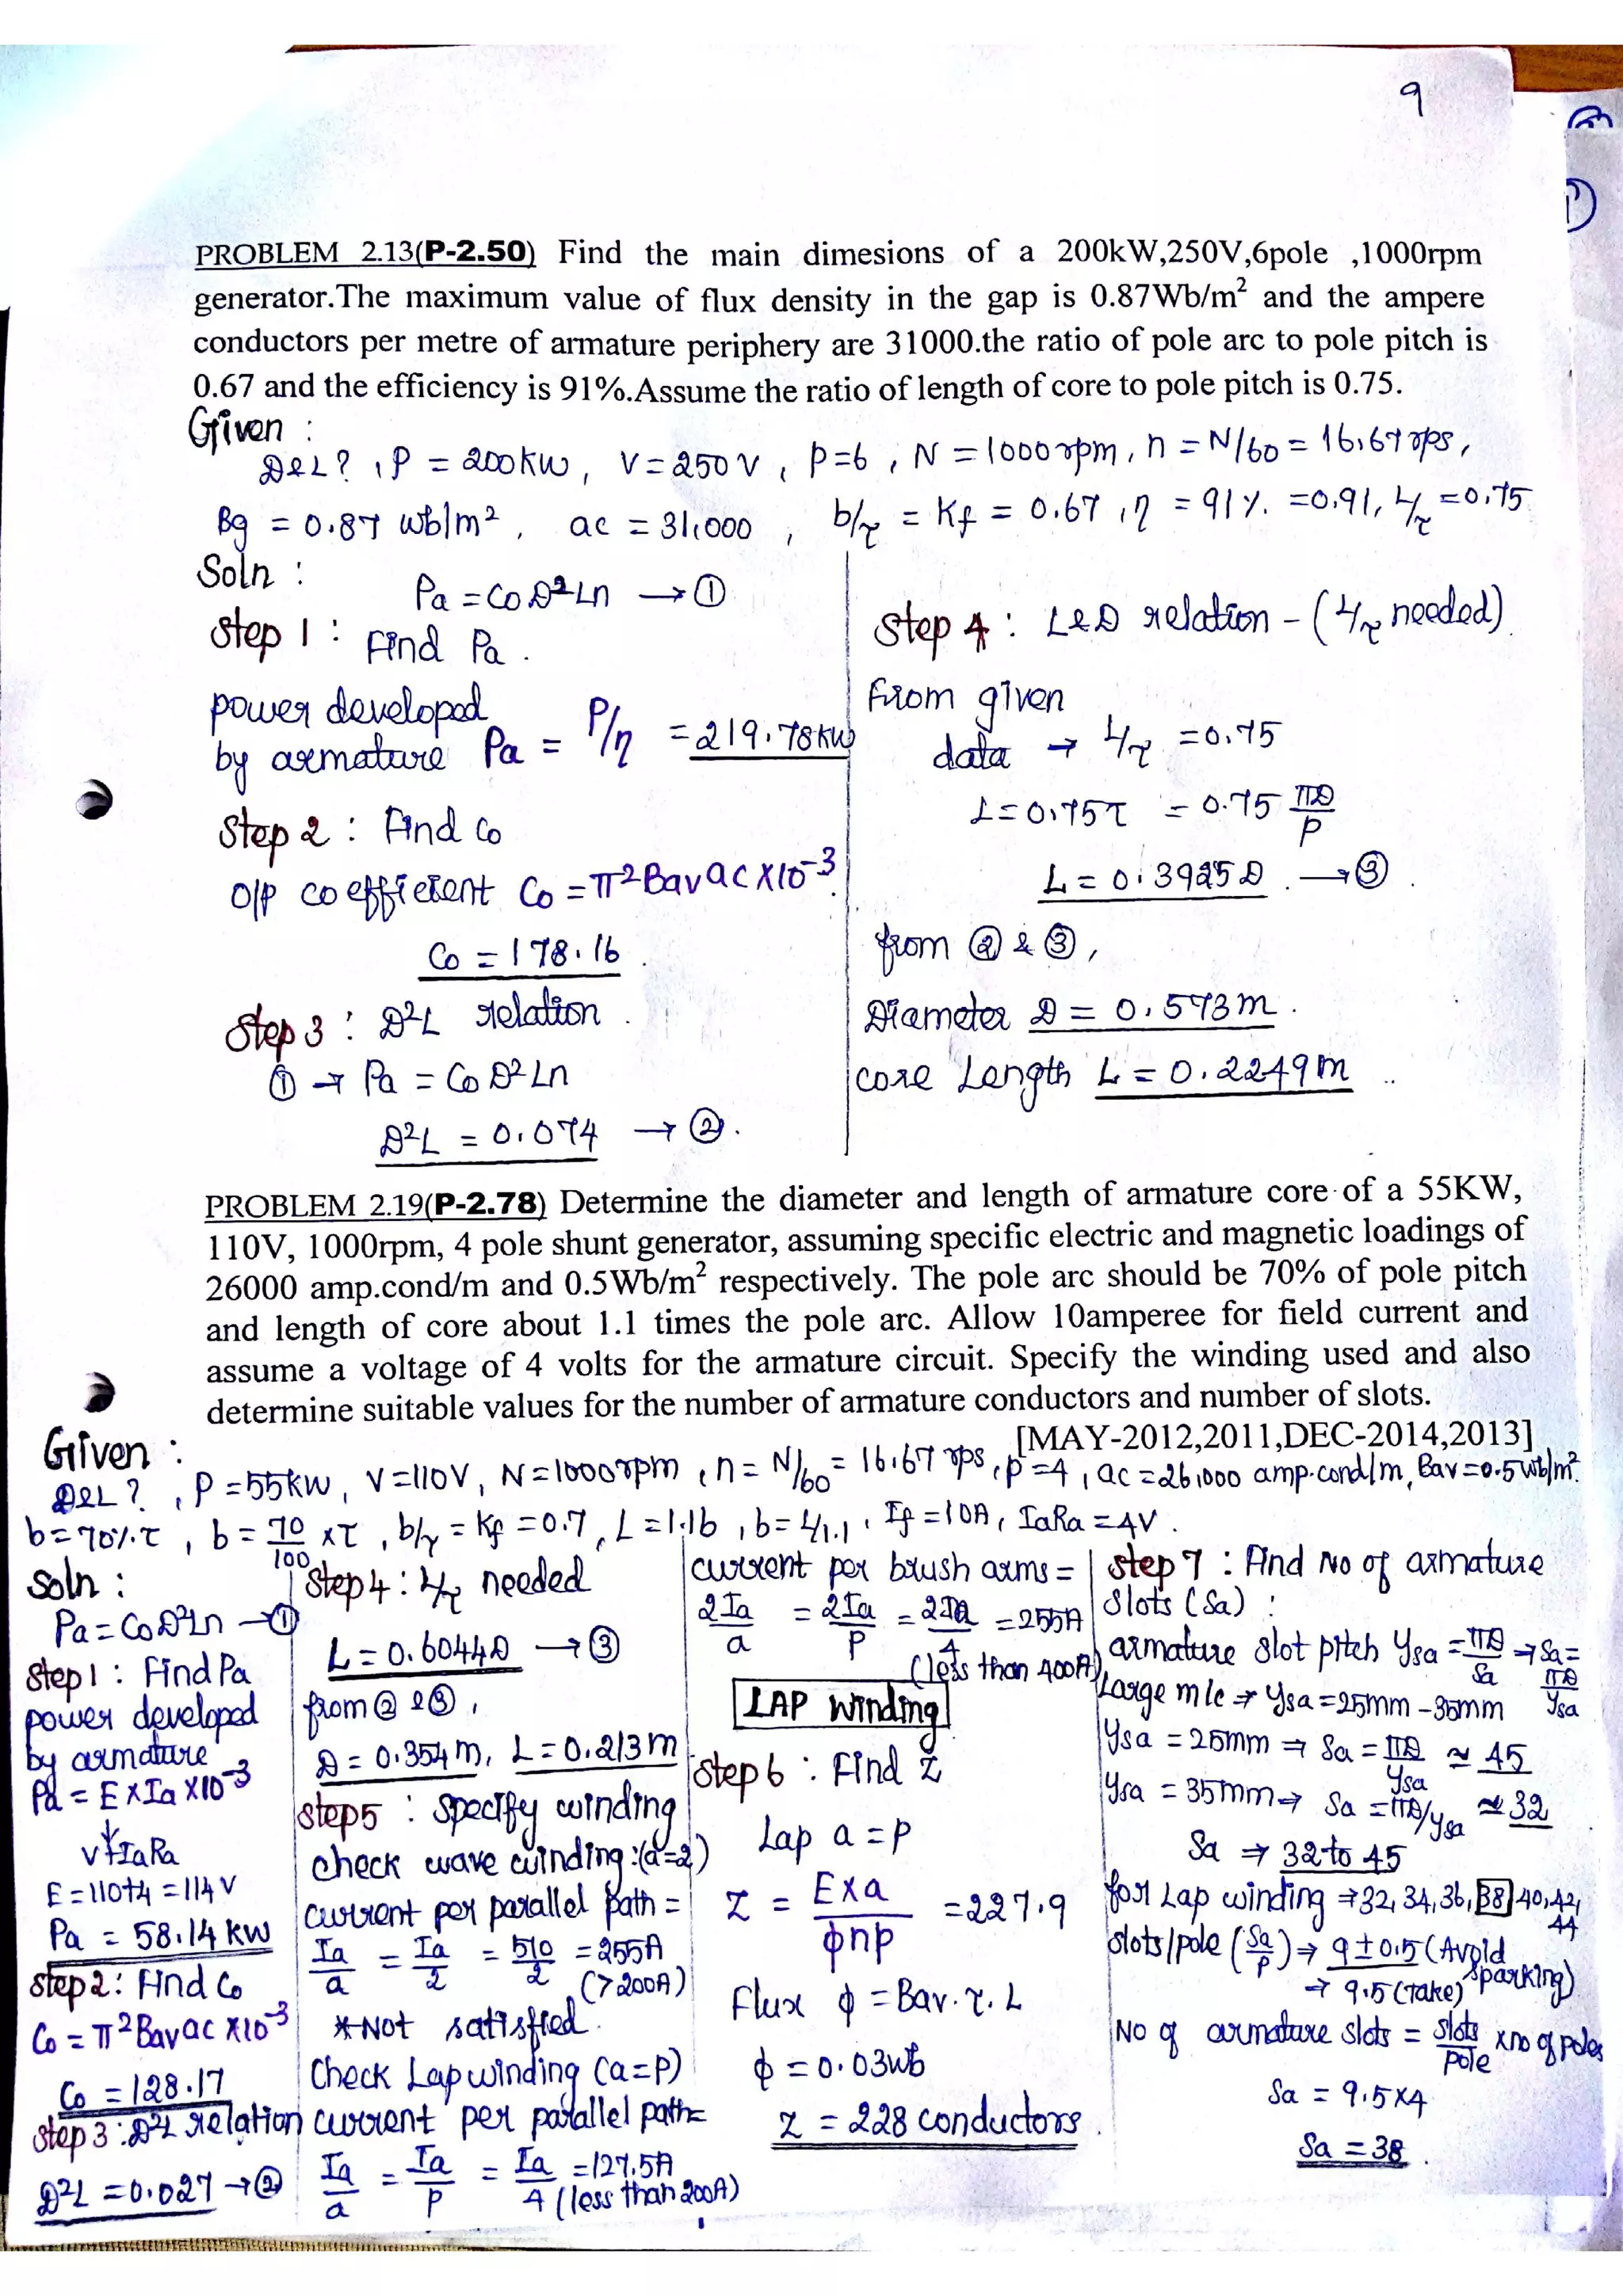 9
PROBLEM 2.13(P-2.50) Find the main dimesions of a 200kW,250V,6pole ,1000rpm
generator.The maximum value of flux density in the gap is 0.87Wb/m² and the ampere
conductors per metre of armature periphery are 31000.the ratio of pole arc to pole pitch is
0.67 and the efficiency is 91%.Assume the ratio of length of core to pole pitch is 0.75.
Given :
D&L? , P = 200KW, V=250V, P=6, N = 1000rpm, n = N/60 = 16.67 rps,
Bg = 0.87 wb/m², ac = 31,000, b/τ = Kf = 0.67, η = 91%. =0.91, L/τ =0.75
Soln :
Pa = CoD²Ln → ①
Step 1 : Find Pa.
power developed
by armature Pa = P/η = 219.78KW
Step 2 : Find Co
O/P coefficient Co = π²Bav ac X10⁻³
Co = 178.16
Step 3 : D²L relation
① → Pa = CoD²Ln
D²L = 0.074 → ②.
Step 4 : L&D relation - (L/τ needed)
From given
data → L/τ =0.75
L=0.75τ = 0.75 πD/P
L = 0.3925D. → ③.
from ② & ③,
Diameter D = 0.573m.
core Length L = 0.2249m
PROBLEM 2.19(P-2.78) Determine the diameter and length of armature core of a 55KW,
110V, 1000rpm, 4 pole shunt generator, assuming specific electric and magnetic loadings of
26000 amp.cond/m and 0.5Wb/m² respectively. The pole arc should be 70% of pole pitch
and length of core about 1.1 times the pole arc. Allow 10amperee for field current and
assume a voltage of 4 volts for the armature circuit. Specify the winding used and also
determine suitable values for the number of armature conductors and number of slots.
[MAY-2012,2011,DEC-2014,2013]
Given :
D&L? , P =55kW, V=110V, N=1000rpm, n= N/60 = 16.67 rps, p=4, ac =26,000 amp.cond/m, Bav=0.5wb/m²
b=70%.τ, b = 70/100 xτ, b/τ = Kf =0.7, L =1.1b, b= L/1.1, If =10A, IaRa =4V.
Soln :
Pa = CoD²Ln → ①
Step 1 : Find Pa
power developed
by armature
Pa = E X Ia X10⁻³
V+IaRa
E = 110+4 =114V
Pa = 58.14 kW
Step 2 : Find Co
Co = π²Bav ac X10⁻³
Co = 128.17
Step 3 : D²L relation
D²L = 0.027 → ②
Step 4 : L/τ needed
L = 0.6044D → ③
from ② & ③,
D = 0.354m, L = 0.213m
Step 5 : Specify winding
check wave winding :(a=2)
current per parallel path =
Ia/a = Ia/2 = 510/2 = 255A
(>200A)
*Not satisfied.
Check Lap winding (a=P)
current per parallel path=
Ia/a = Ia/P = Ia/4 =127.5A
(less than 200A)
current per brush arms =
2Ia/a = 2Ia/P = 2Ia/4 =255A
(less than 400A)
LAP Winding
Step 6 : Find Z
Lap a = P
Z = EXa/ϕnp = 227.9
Flux ϕ = Bav.τ.L
ϕ = 0.03wb
Z = 228 conductors.
Step 7 : Find No of armature
Slots (Sa) :
armature slot pitch Ysa = πD/Sa → Sa = πD/Ysa
Large m/c → Ysa=25mm -35mm
Ysa = 25mm → Sa = πD/Ysa ≈ 45
Ysa = 35mm → Sa = πD/Ysa ≈ 32
Sa → 32 to 45
for Lap winding → 32, 34, 36, 38, 40, 42,
44
slots/pole (Sa/P) → 9±0.5 (Avoid
sparking)
→ 9.5 (Take)
No of armature slots = slots/pole x no of poles
Sa = 9.5X4
Sa = 38.